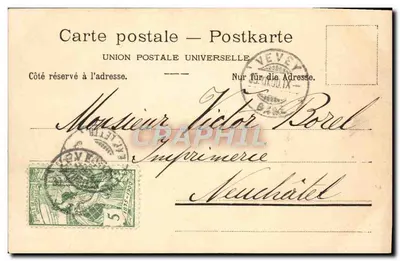 Carte postale — Postkarte
UNION POSTALE UNIVERSELLE
Côté réservé à l'adresse.
Nur für die Adresse.
VEVEY
Monsieur Victor Borel
Imprimerie
Neuchâtel
5
CPAPHIL